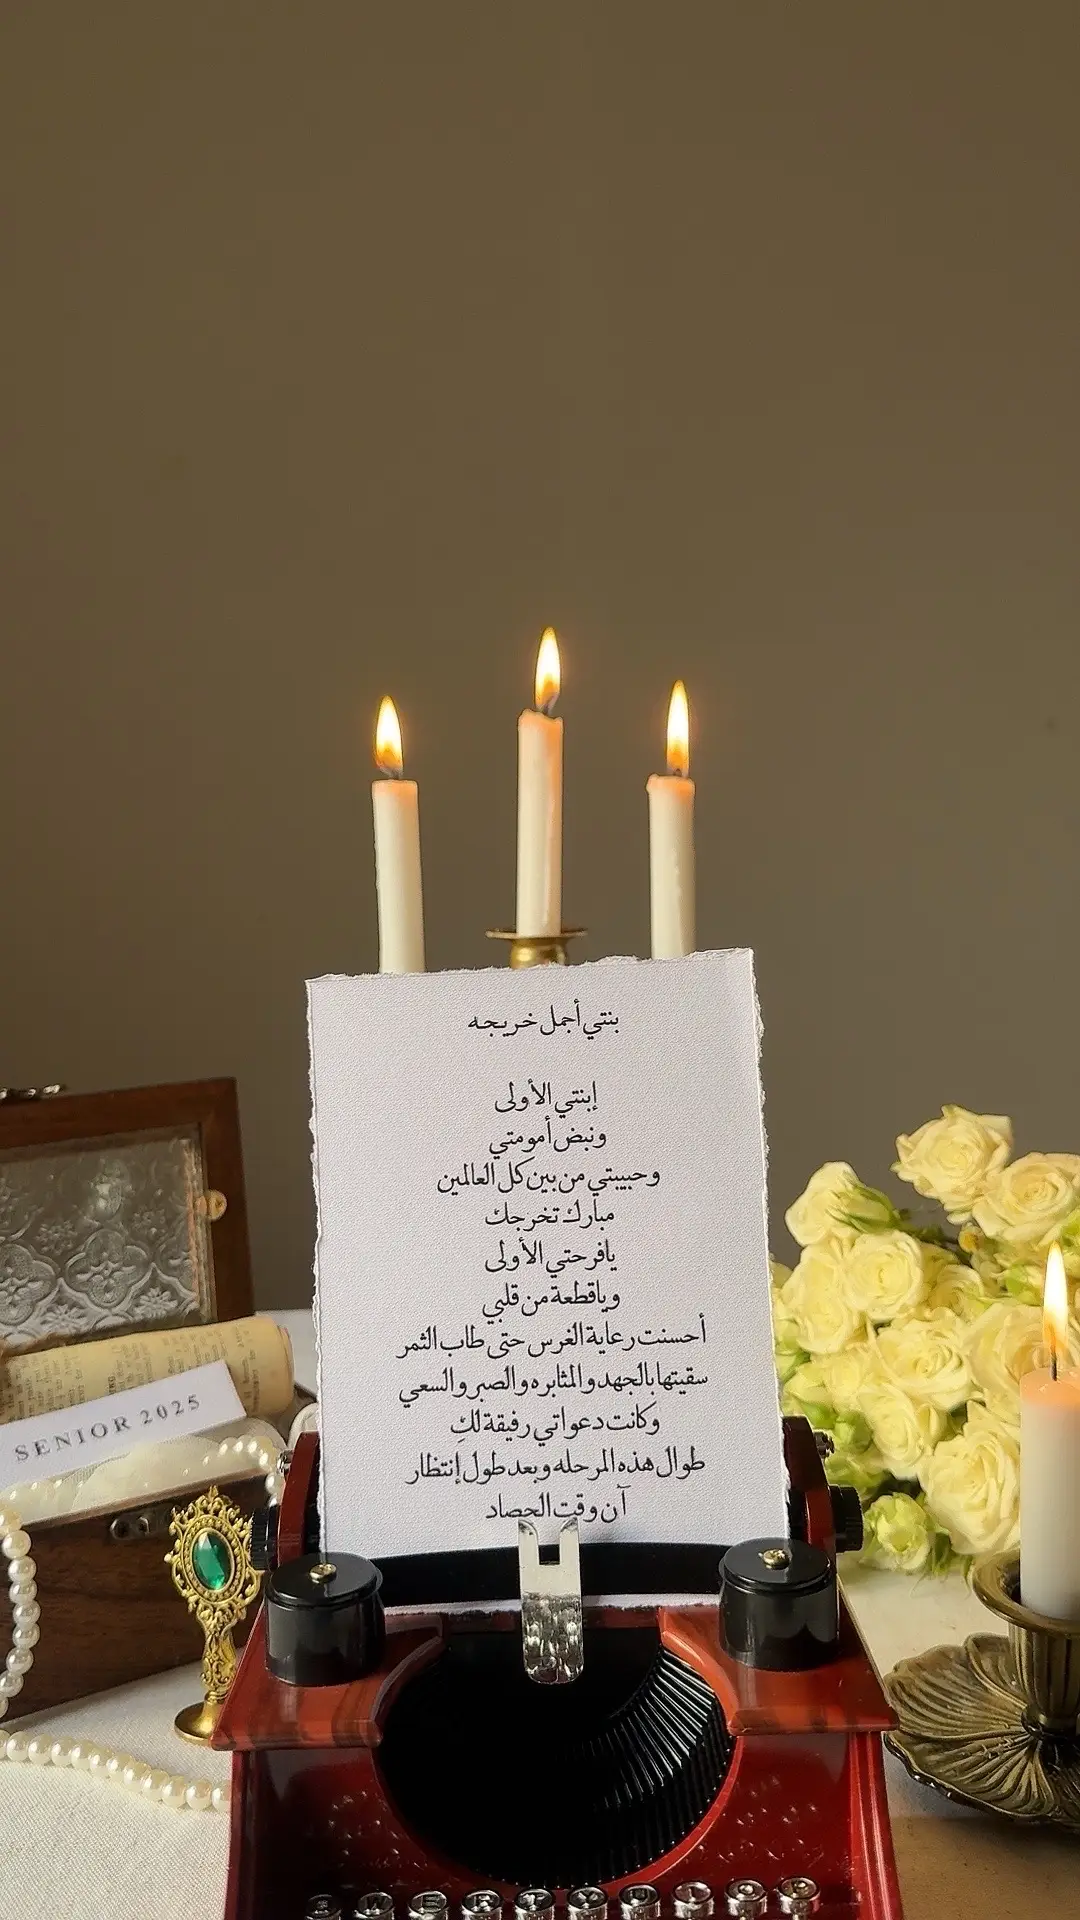 بنتي أجمل خريجه
إبنتي الأولى
ونبض أمومتي
وحبيبتي من بين كل العالمين
مبارك تخرجك
يافرحتي الأولى
وياقطعة من قلبي
أحسنت رعاية الغرس حتى طاب الثمر
سقيتها بالجهد والمثابره والصبر والسعي
وكانت دعواتي رفيقة لكِ
طوال هذه المرحله وبعد طول إنتظار
آن وقت الحصاد
SENIOR 2025
W E R T Y U I O P